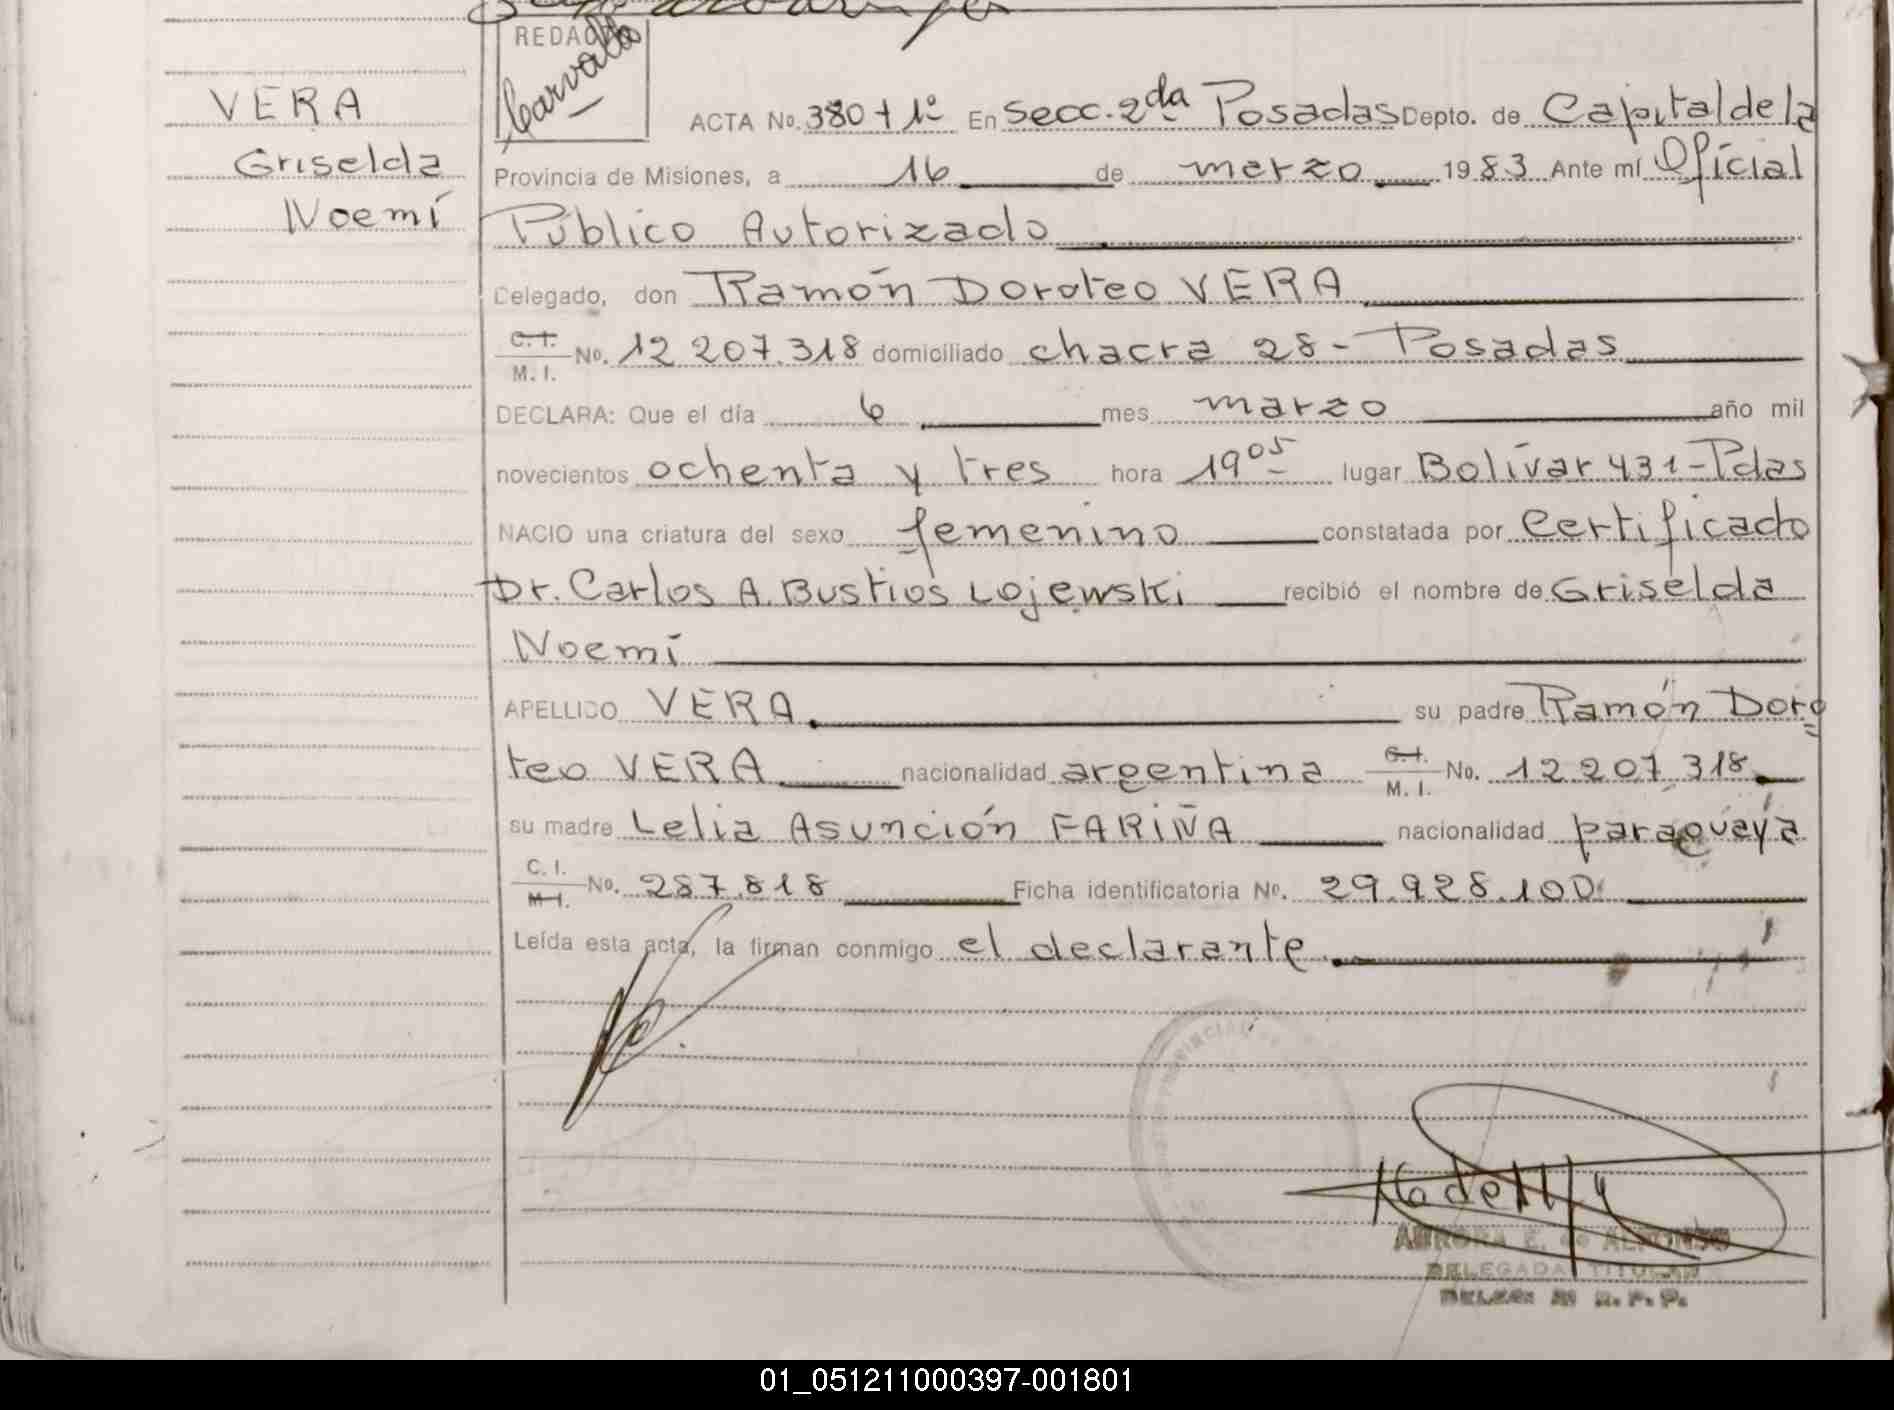 REDAC
Carvallo
VERA
Griselda
Noemí
ACTA No. 380 t 1º En Secc. 2da Posadas Depto. de Capital de la
Provincia de Misiones, a 16 de marzo 1983 Ante mí Oficial
Público Autorizado
Delegado, don Ramón Doroteo VERA
C. I.
M. I. No. 12 207.318 domiciliado chacra 28 - Posadas
DECLARA: Que el día 6 mes marzo año mil
novecientos ochenta y tres hora 19 05 lugar Bolívar 431 - Pdas
NACIO una criatura del sexo femenino constatada por Certificado
Dr. Carlos A. Bustios Lojewski recibió el nombre de Griselda
Noemí
APELLIDO VERA su padre Ramón Doro
teo VERA nacionalidad argentina C. I. M. I. No. 12 207 318
su madre Lelia Asunción FARIÑA nacionalidad paraguaya
C. I.
M. I. No. 287.818 Ficha identificatoria No. 29.928.100
Leída esta acta, la firman conmigo el declarante
AURORA E. de ALFONSO
DELEGADA TITULAR
01_051211000397-001801